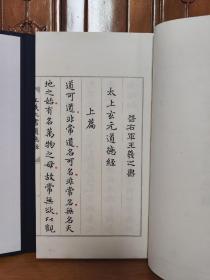 晉右軍王羲之書
太上玄元道德經
上篇
道可道非常道名可名非常名無名天
地之始有名萬物之母故常無欲以觀